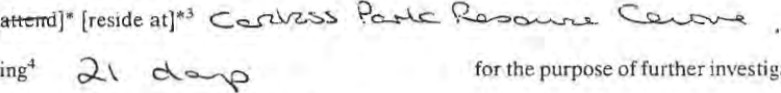 attend]* [reside at]*3 Park Resource Centre .
ing4 21 days for the purpose of further investig